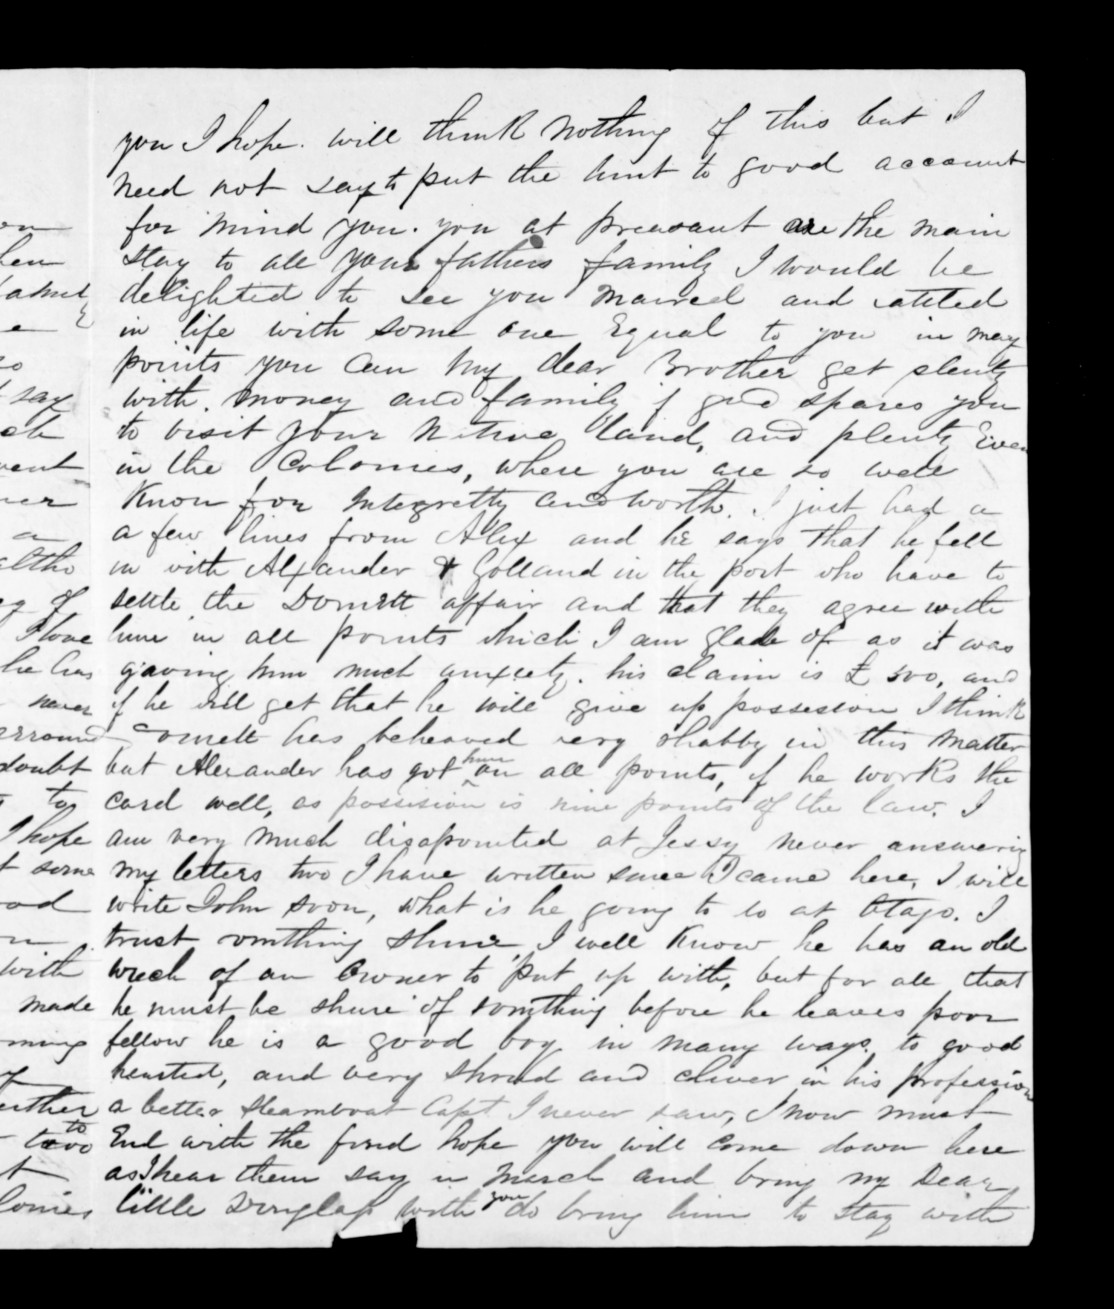 you I hope. will think nothing of this but I
need not say to put the hint to good account
for mind you. you at preasant are the main
stay to all your fathers family I would be
delighted to see you married and settled
in life with some one Equal to you in may
points you can my dear Brother get plenty
with. money and family if god spares you
to visit your Native land, and plenty Even
in the Colonies, where you are so well
Known for Integretty and worth. I just had a
a few lines from Alex and he says that he fell
in with Alxander & Golland in the port who have to
settle the Domett affair and that they agree with
him in all points which I am glade of as it was
gaving him much anxiety. his claim is £500, and
if he will get that he will give up possesion I think
Domett has beheaved very shabby in this matter
but Alexander has got him on all points, if he works the
card well, as possision is nine points of the law. I
am very much disapointed at Jessy never answering
my letters two I have written since I came here, I will
write John soon, what is he going to do at Otago. I
trust somthing shure I well Know he has an old
wrech of an Owner to put up with, but for all that
he must be shure of somthing before he leaves poor
fellow he is a good boy in many ways. to good
hearted, and very shrud and cliver in his profession
a better Steamboat Capt I never saw, I now must
End with the fond hope you will come down here
as I hear them say in March and bring my Dear
little Douglas with you do bring him to stay with
on
hen
e
so
say
ch
vent
a
altho
eg of
I love
he has
never
erround
doubt
to
I hope
t some
od
with
made
oming
either
to two
t
lonies